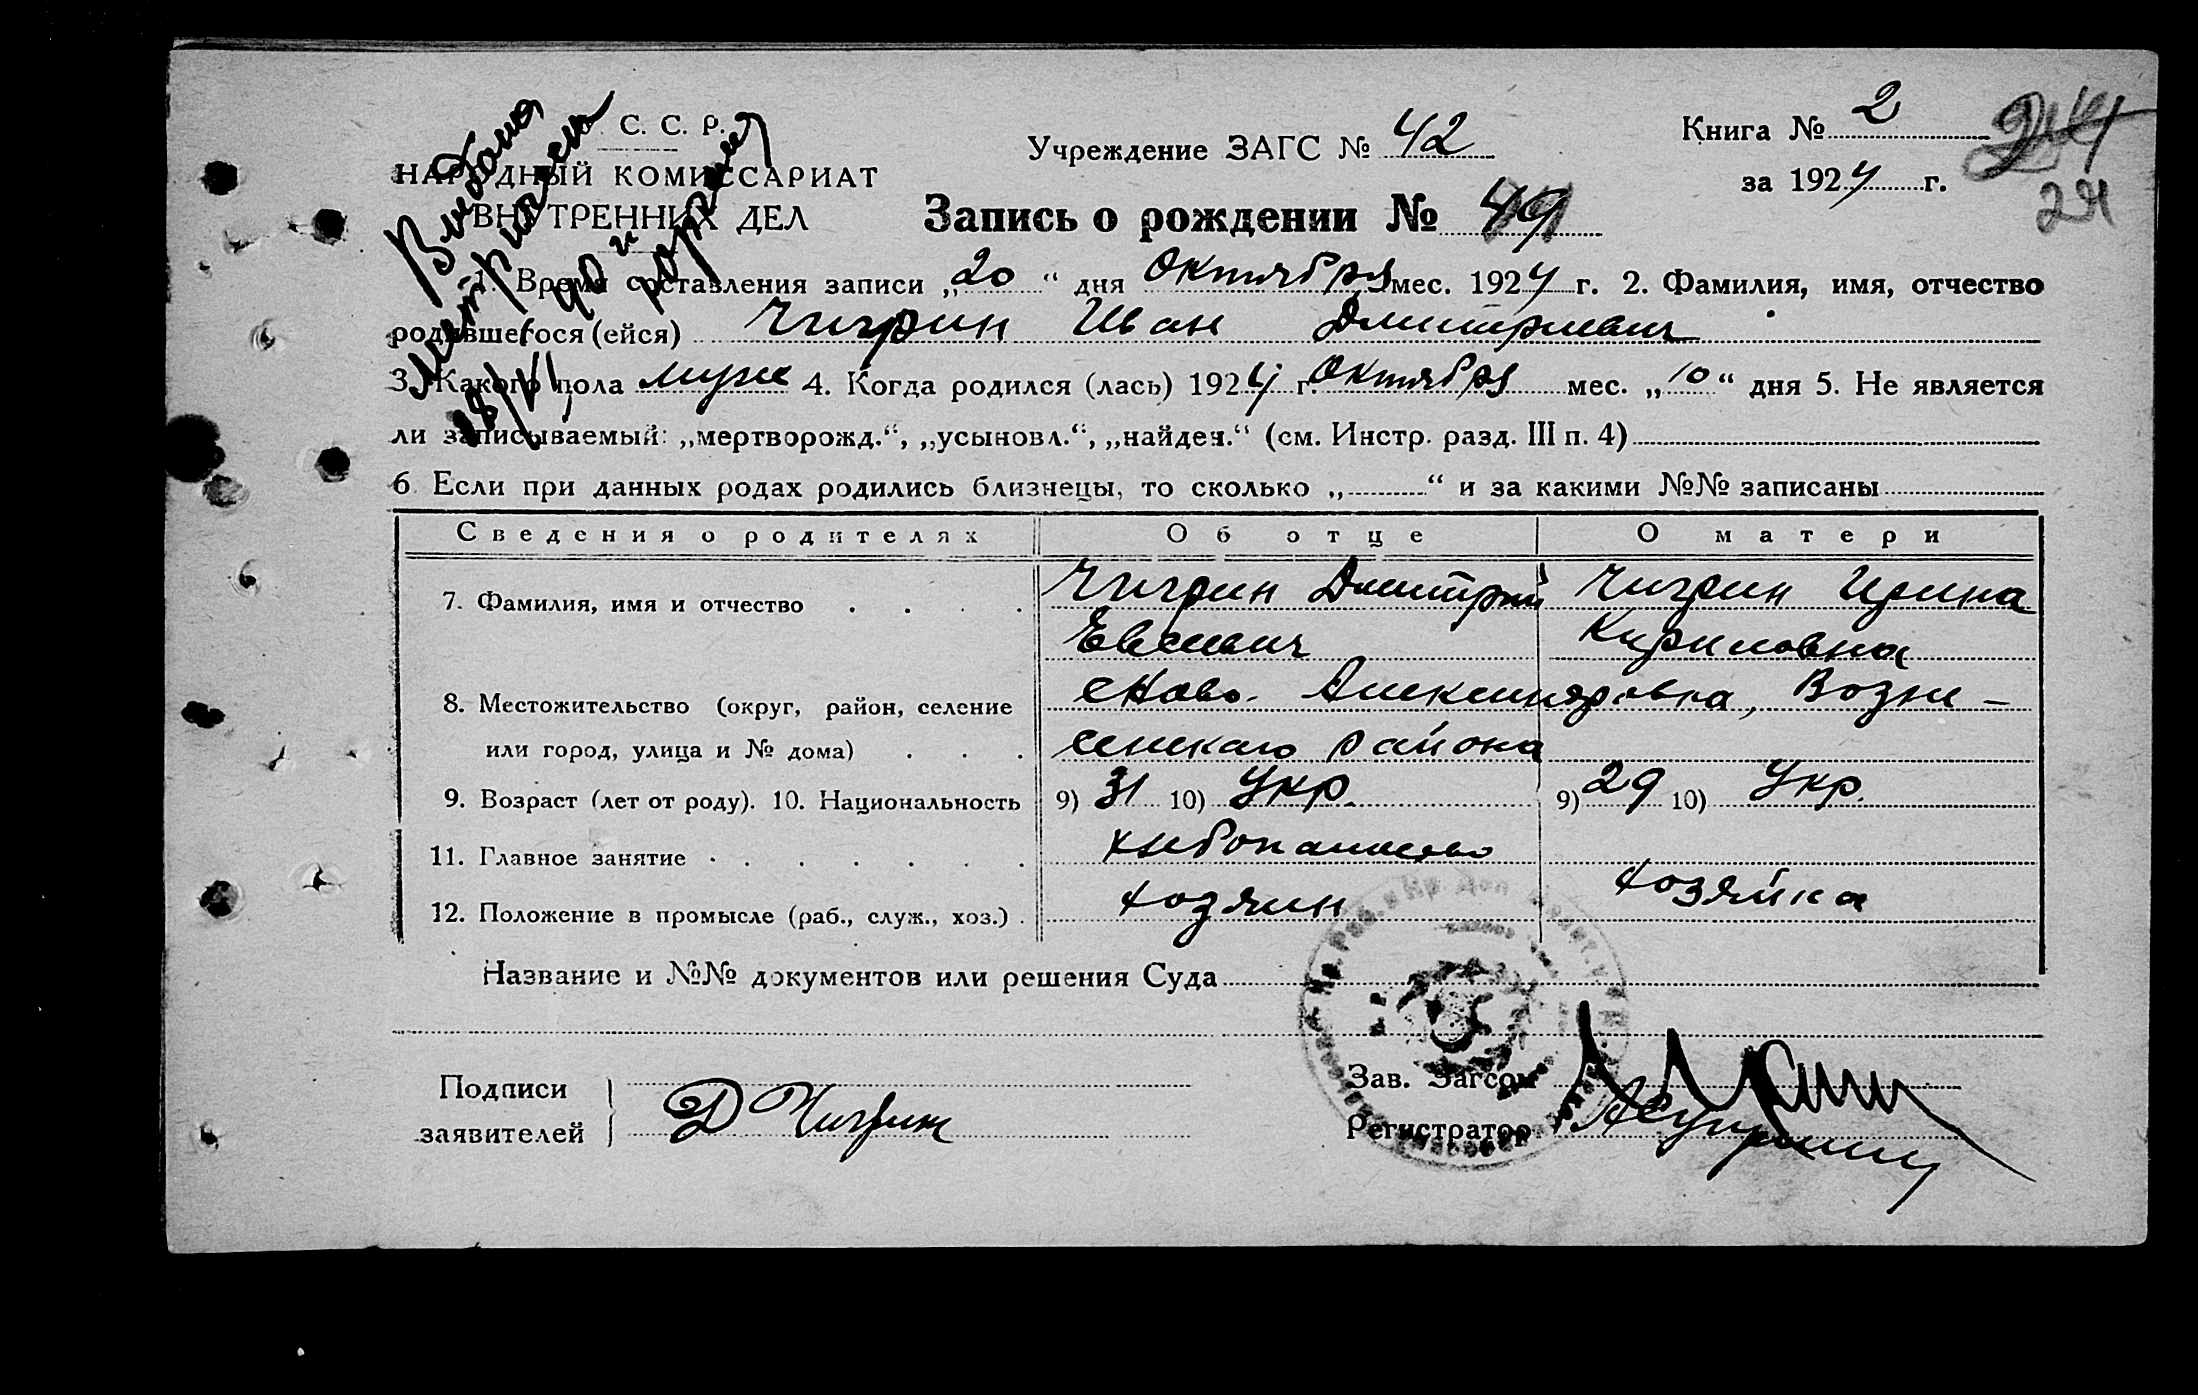 С. С. Р.
НАРОДНЫЙ КОМИССАРИАТ
ВНУТРЕННИХ ДЕЛ
Учреждение ЗАГС № 42
Книга № 2
за 1924 г.
24
Запись о рождении № 49
Выдана
18/VI
1. Время составления записи „20“ дня Октября мес. 1924 г. 2. Фамилия, имя, отчество
родившегося (ейся) Чигрин Иван Дмитриевич
3. Какого пола муж 4. Когда родился (лась) 1924 г. Октября мес. „10“ дня 5. Не является
ли записываемый: „мертворожд.“, „усыновл.“, „найден.“ (см. Инстр. разд. III п. 4)
6. Если при данных родах родились близнецы, то сколько „ “ и за какими №№ записаны
Сведения о родителях Об отце О матери
7. Фамилия, имя и отчество Чигрин Дмитрий Чигрин Ирина
Евсевич Кириловна
8. Местожительство (округ, район, селение Ново-Александровка, Возне-
или город, улица и № дома) сенскаго района
9. Возраст (лет от роду). 10. Национальность 9) 31 10) Укр. 9) 29 10) Укр.
11. Главное занятие хлебопашество
12. Положение в промысле (раб., служ., хоз.) хозяин хозяйка
Название и №№ документов или решения Суда
Подписи
заявителей Д Чигрин
Зав. Загсом
Регистратор